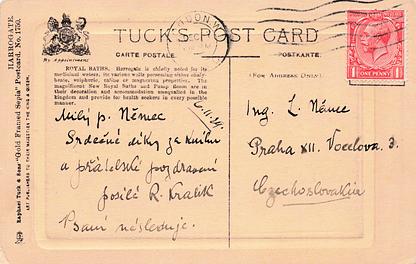 HARROGATE.
"Gold Framed Sepia" Postcard, No. 1750.
Raphael Tuck & Sons
ART PUBLISHERS TO THEIR MAJESTIES THE KING & QUEEN.
By Appointment
TUCK'S POST CARD
CARTE POSTALE.
POSTKARTE.
(FOR ADDRESS ONLY)
LONDON.W.
ONE PENNY
ROYAL BATHS. Harrogate is chiefly noted for its
medicinal waters, its various wells possessing either chaly-
beate, sulphuric, saline or magnesia properties. The
magnificent New Royal Baths and Pump Room are in
their decoration and accommodation unequalled in the
kingdom and provide for health seekers in every possible
manner.
Milý p. Němec
Srdečné díky za knihu
a přátelské pozdravení
posílá R. Králík
Psaní následuje.
Ing. L. Němec
Praha XII. Vocelova. 3.
Czechoslovakia